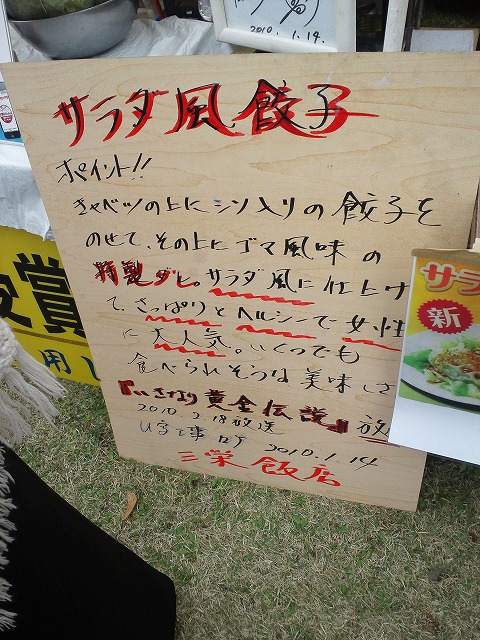 2010.1.14.
サラダ風餃子
ポイント!!
きゃベツの上にシソ入りの餃子を
のせて、その上にゴマ風味の
特製ダレ。サラダ風に仕上げ
て、さっぱりとヘルシーで女性
に大人気。いくつでも
食べられそうな美味しさ
『いきなり黄金伝説』放
2010.2.18放送
2010.1.14
三栄飯店
サラ
新
受賞
用し